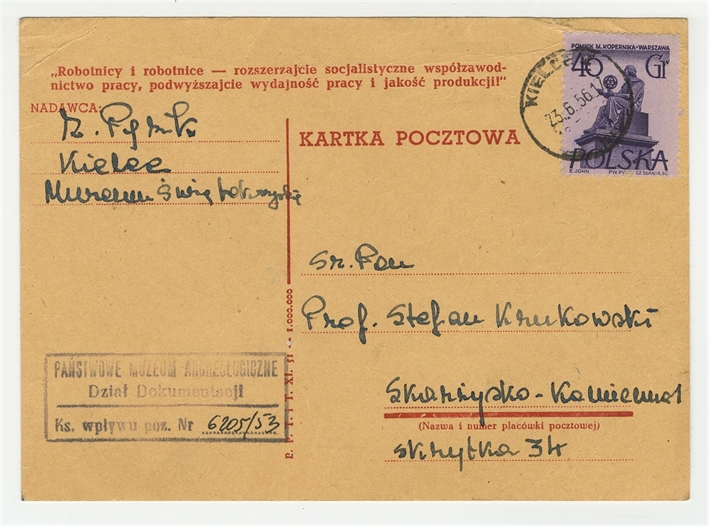 „Robotnicy i robotnice — rozszerzajcie socjalistyczne współzawod-
nictwo pracy, podwyższajcie wydajność pracy i jakość produkcji!"
NADAWCA:
Kielce
Muzeum Świętokrzyskie
KARTKA POCZTOWA
POMNIK M. KOPERNIKA-WARSZAWA
40 Gr
POLSKA
KIELCE
23.6.56
Sz. Pan
Prof. Stefan Krukowski
Skarżysko-Kamienna 1
(Nazwa i numer placówki pocztowej)
skrytka 34
PAŃSTWOWE MUZEUM ARCHEOLOGICZNE
Dział Dokumentacji
Ks. wpływu poz. Nr 6205/53